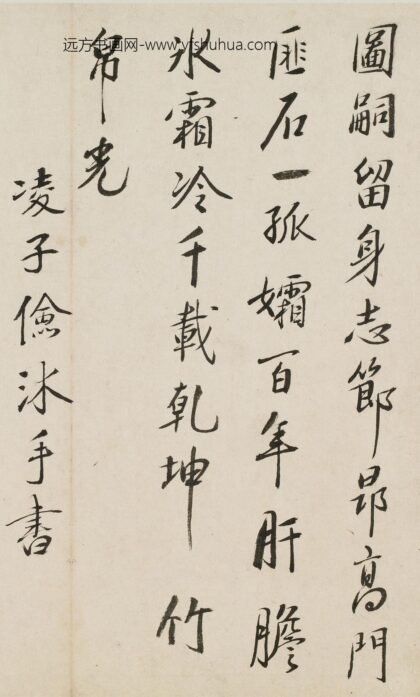 远方书画网-www.yfshuhua.com
圖嗣留身志節昂高門
匪石一孤孀百年肝膽
冰霜冷千載乾坤竹
帛光
凌子儉沐手書